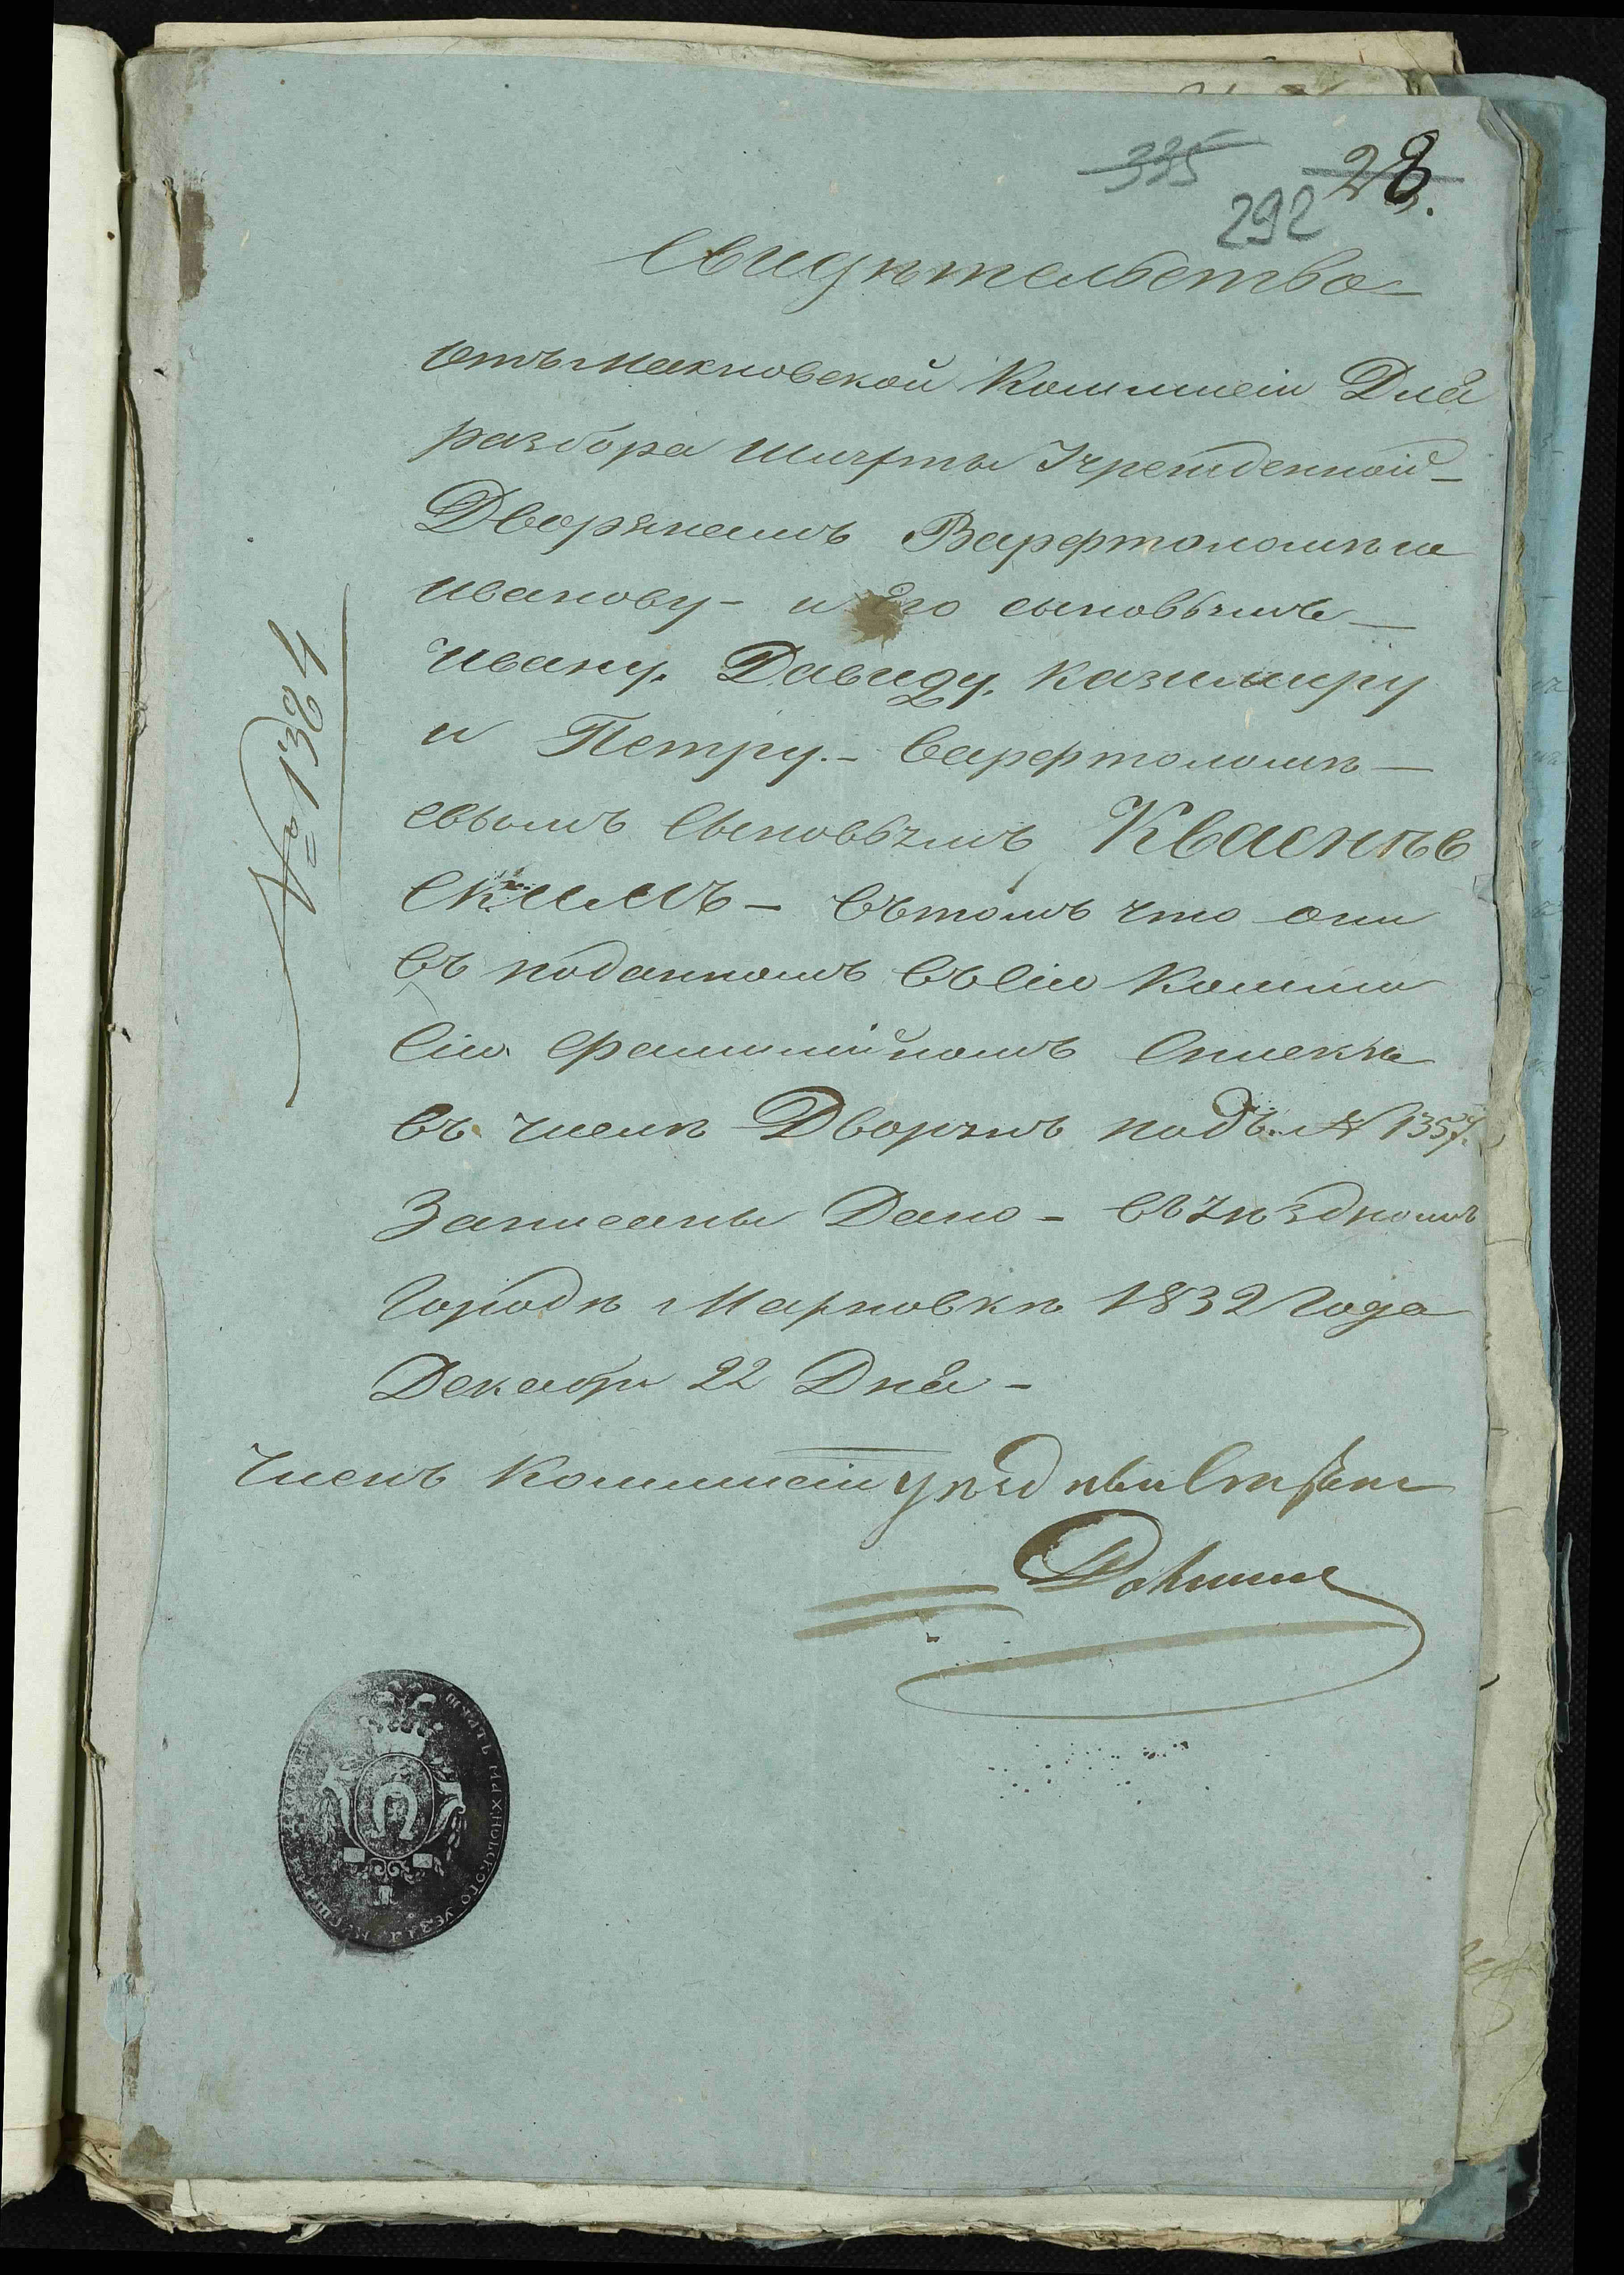 335
28.
292
Свидѣтельство
отъ Махновской Коммисіи Для
разбора Шляхты Учрежденной
Дворянамъ Варфтоломѣю
Иванову - и Его сыновьямъ
Ивану, Давиду, Казимиру
и Петру. - Варфтоломѣ
евымъ Сыновьямъ Кваснѣв
скимъ - вътомъ что они
въ поданномъ въ Сію Комми
сію Фамилийномъ Спискѣ
въ числѣ Дворянъ подъ № 1357.
Записаны Дано - въ уѣздномъ
Городѣ Махновкѣ 1832 Года
Декабря 22 Дня -
Членъ Коммисіи уѣздный
№ 1384
МАХНОВСКОГО УЕЗДА